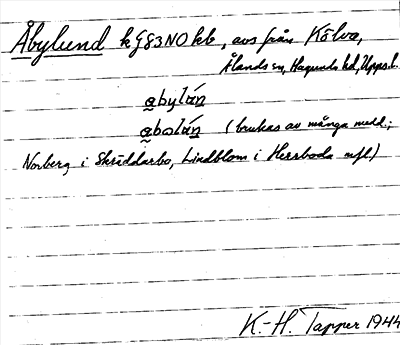 Åbylund k G83NO kb, avs från Kölva,
Ålands sn, Hagunda hd, Upps. l.
abylán
abolán (brukas av många medd;
Norberg i Skräddarbo, Lindblom i Herrboda mfl)
K.-H. Tapper 1944